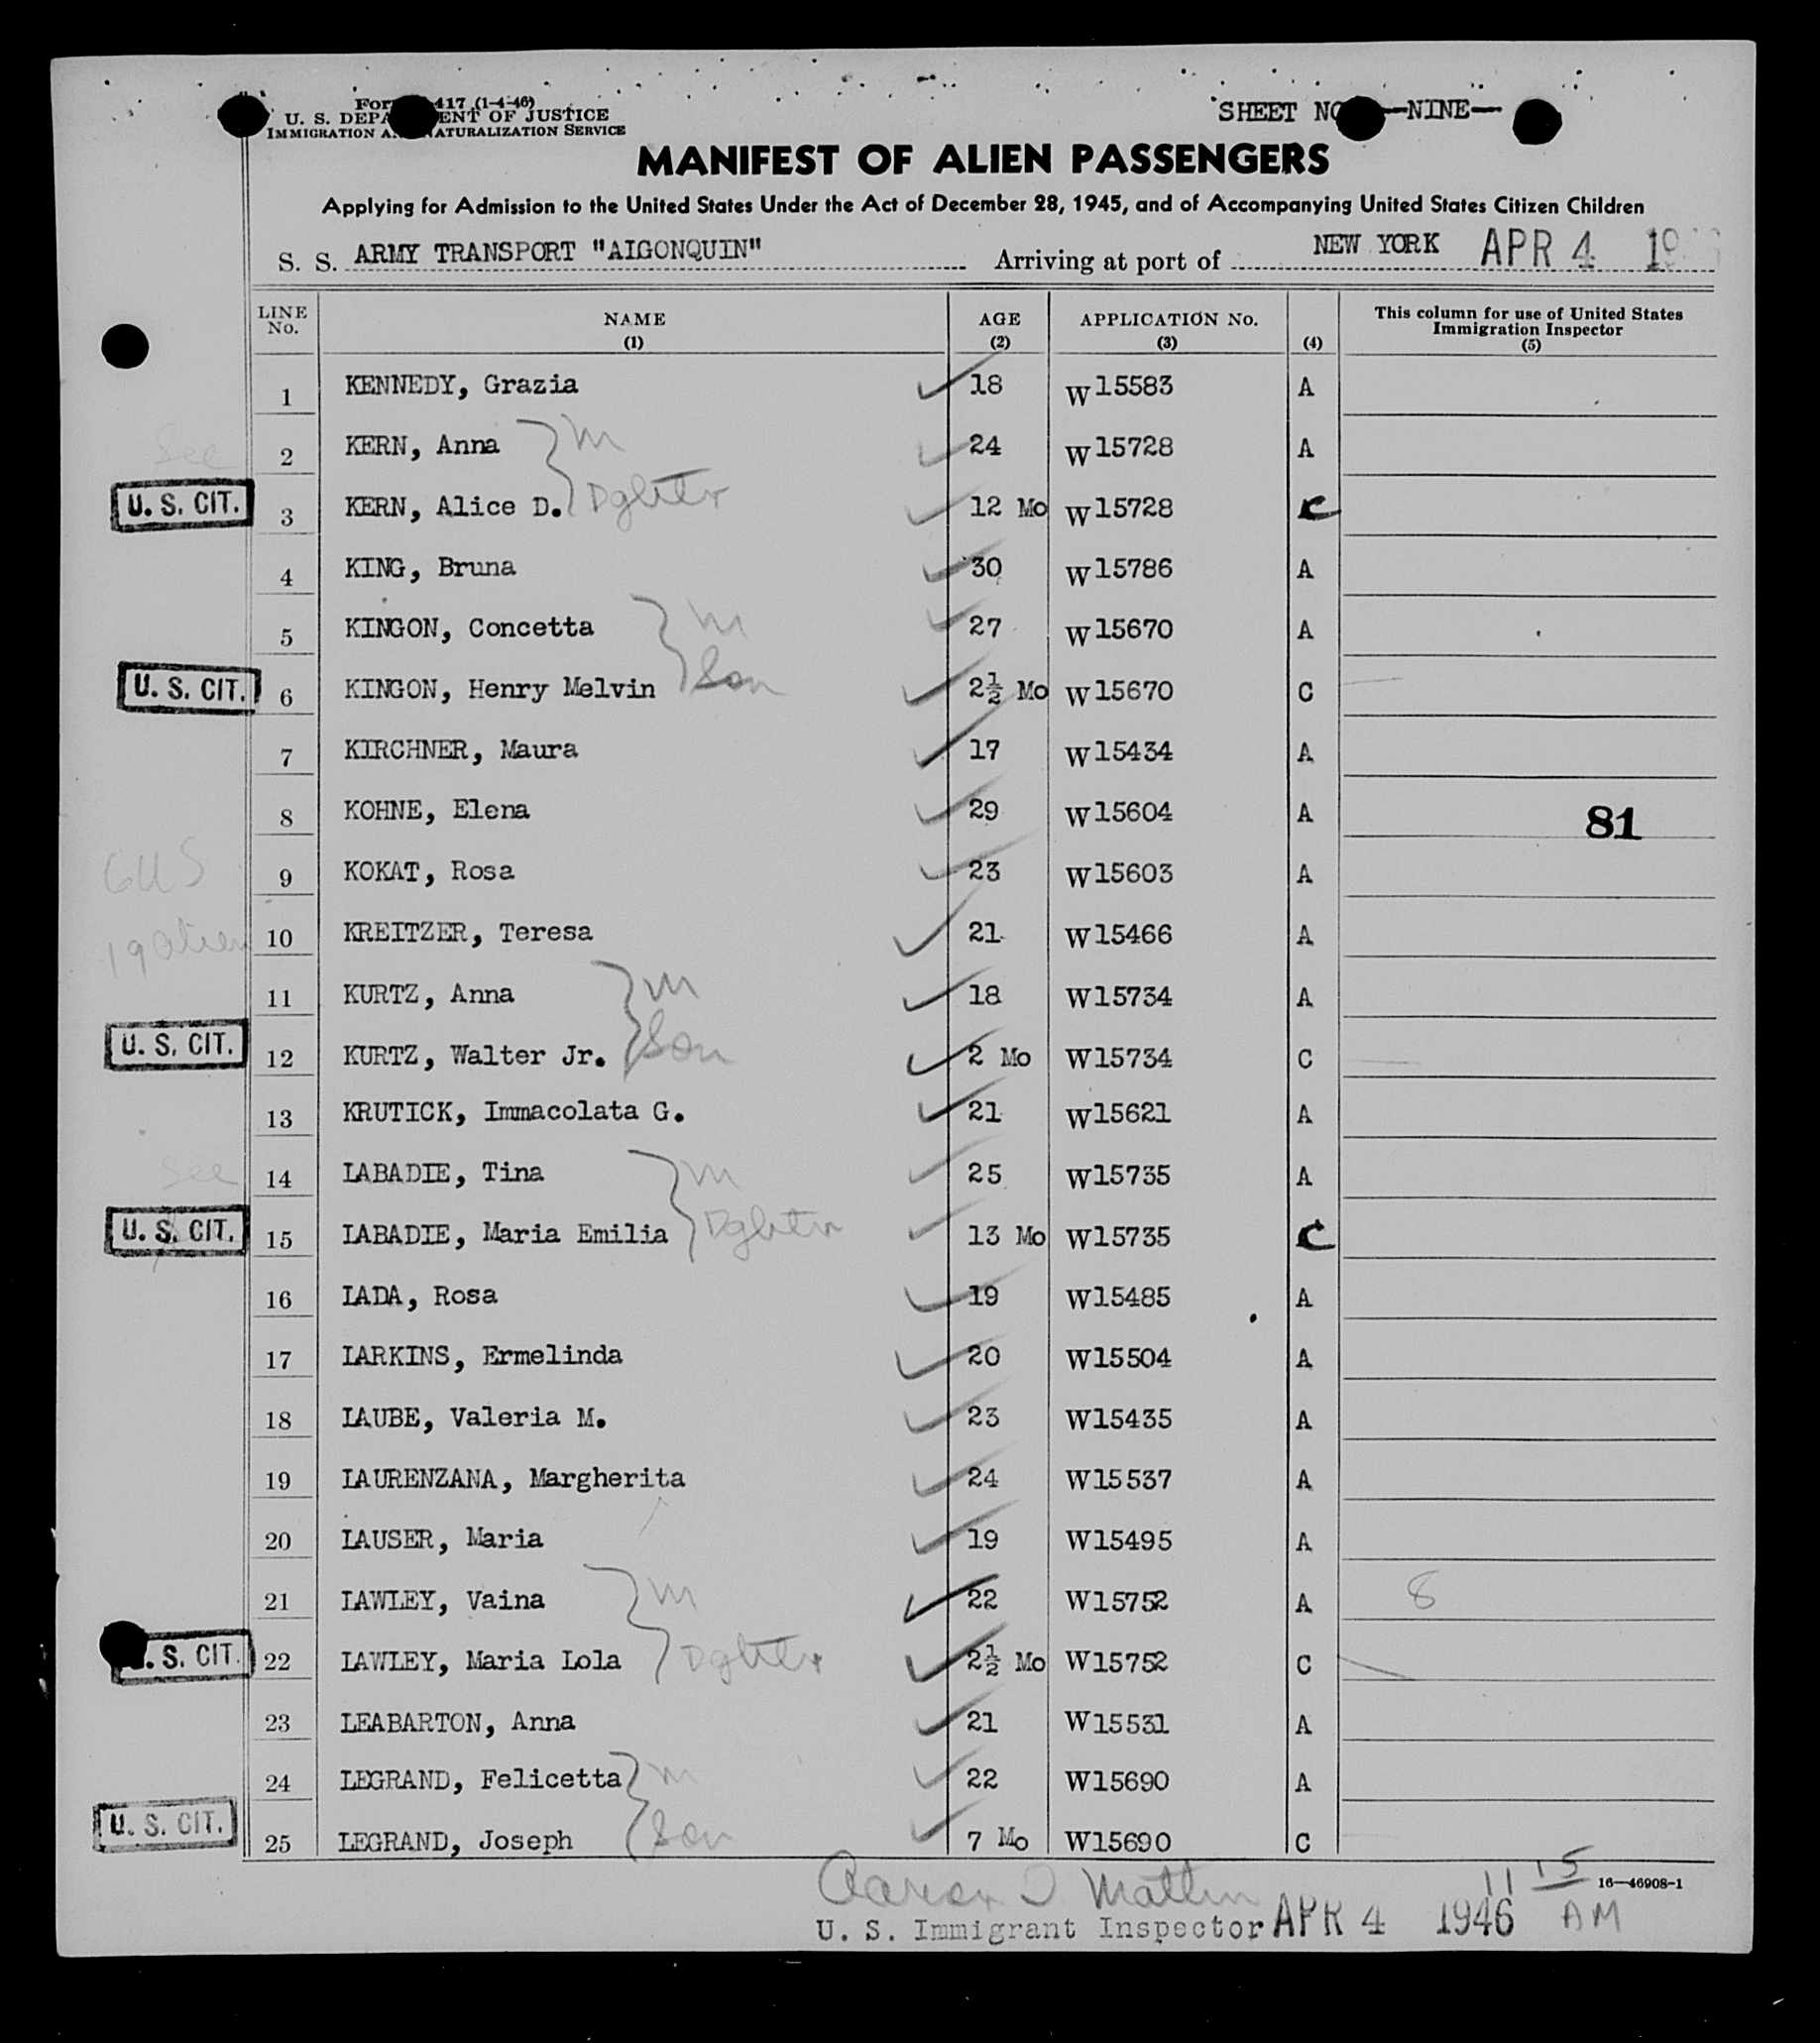 417 (1-4-46)
U. S. DEPA ENT OF JUSTICE
IMMIGRATION A ATURALIZATION SERVICE
SHEET NO —NINE—
MANIFEST OF ALIEN PASSENGERS
Applying for Admission to the United States Under the Act of December 28, 1945, and of Accompanying United States Citizen Children
S. S. ARMY TRANSPORT "AlGONQUIN" Arriving at port of NEW YORK APR 4
LINE No. NAME (1) AGE (2) APPLICATION No. (3) (4) This column for use of United States Immigration Inspector (5)
1 KENNEDY, Grazia 18 W15583 A
See
2 KERN, Anna M 24 W15728 A
U. S. CIT. 3 KERN, Alice D. Dghter 12 Mo W15728 C
4 KING, Bruna 30 W15786 A
5 KINGON, Concetta M 27 W15670 A
U. S. CIT. 6 KINGON, Henry Melvin Son 2½ Mo W15670 C
7 KIRCHNER, Maura 17 W15434 A
8 KOHNE, Elena 29 W15604 A 81
6 US 9 KOKAT, Rosa 23 W15603 A
19 alien 10 KREITZER, Teresa 21 W15466 A
11 KURTZ, Anna M 18 W15734 A
U. S. CIT. 12 KURTZ, Walter Jr. Son 2 Mo W15734 C
13 KRUTICK, Immacolata G. 21 W15621 A
See 14 LABADIE, Tina M 25 W15735 A
U. S. CIT. 15 LABADIE, Maria Emilia Dghter 13 Mo W15735 C
16 LADA, Rosa 19 W15485 A
17 LARKINS, Ermelinda 20 W15504 A
18 LAUBE, Valeria M. 23 W15435 A
19 LAURENZANA, Margherita 24 W15537 A
20 LAUSER, Maria 19 W15495 A
21 LAWLEY, Vaina M 22 W15752 A 8
. S. CIT. 22 LAWLEY, Maria Lola Dghter 2½ Mo W15752 C
23 LEABARTON, Anna 21 W15531 A
24 LEGRAND, Felicetta M 22 W15690 A
U. S. CIT. 25 LEGRAND, Joseph Son 7 Mo W15690 C
11 15 AM
16—46908-1
U. S. Immigrant Inspector APR 4 1946